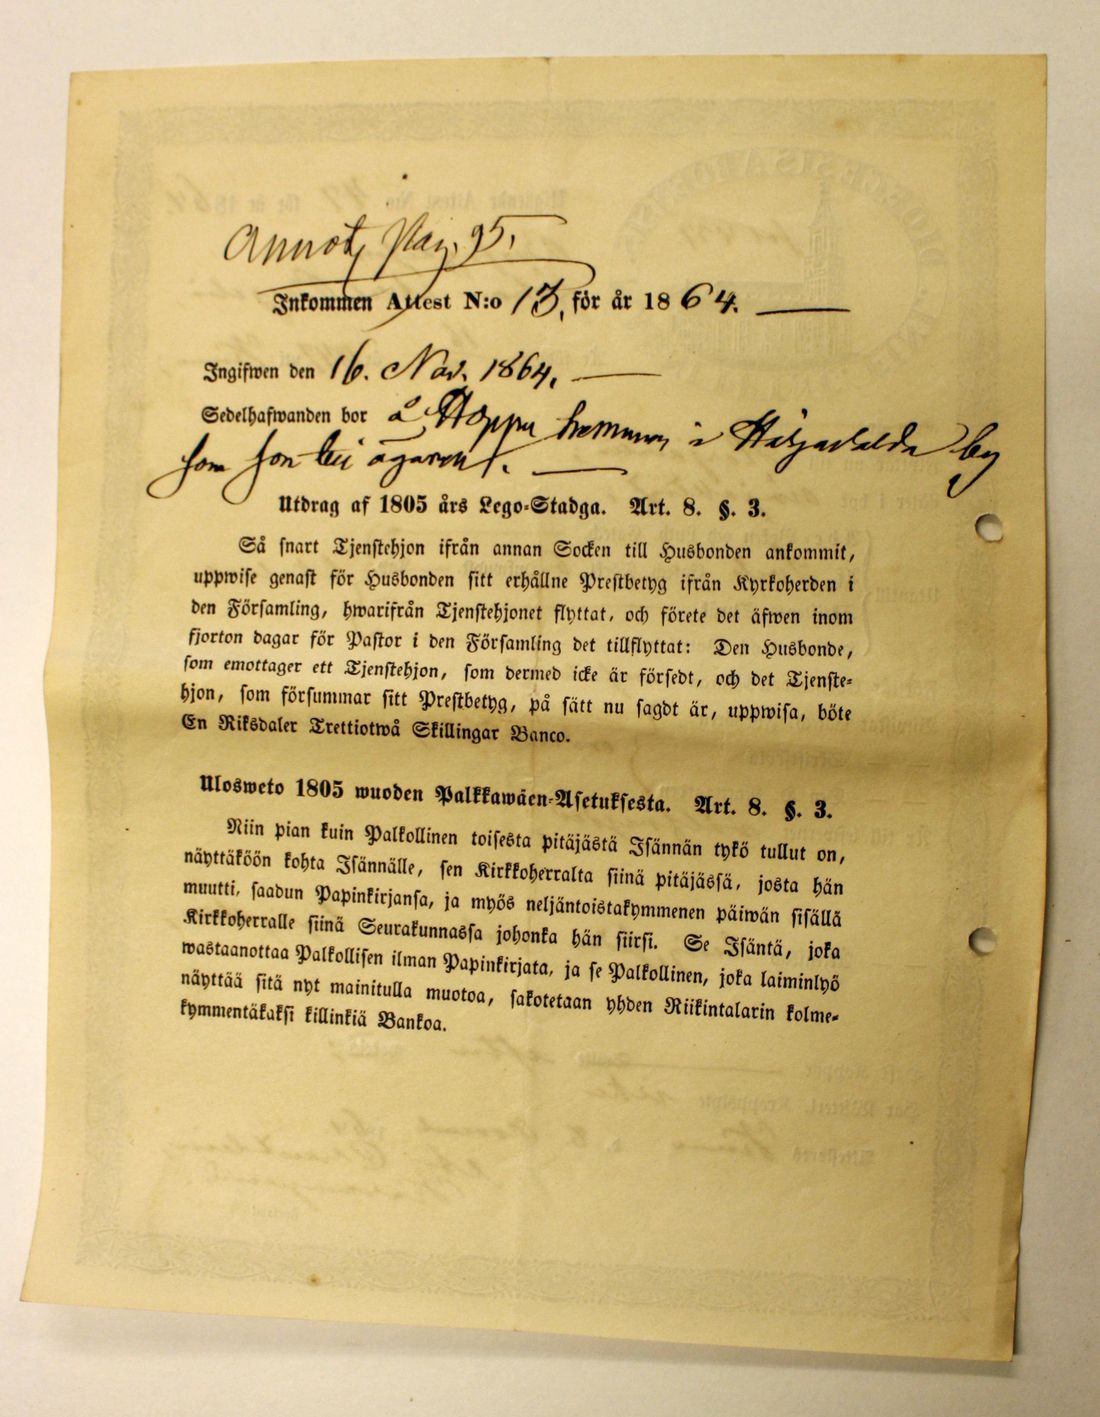 Annot. Pag. 95.
Inkommen Attest N:o 13, för år 1864.
Ingifwen den 16. Nov. 1864.
Sedelhafwanden bor å Hoppu hemman i by
som ägaren.
Utdrag af 1805 års Lego-Stadga. Art. 8. §. 3.
Så snart Tjenstehjon ifrån annan Socken till Husbonden ankommit,
uppwise genast för Husbonden sitt erhållne Prestbetyg ifrån Kyrkoherden i
den Församling, hwarifrån Tjenstehjonet flyttat, och förete det äfwen inom
fjorton dagar för Pastor i den Församling det tillflyttat: Den Husbonde,
som emottager ett Tjenstehjon, som dermed icke är försedt, och det Tjenste-
hjon, som försummar sitt Prestbetyg, på sätt nu sagdt är, uppwisa, böte
En Riksdaler Trettiotwå Skillingar Banco.
Ulosweto 1805 wuoden Palkkawäen-Asetuksesta. Art. 8. §. 3.
Niin pian kuin Palkollinen toisesta pitäjästä Isännän tykö tullut on,
näyttäköön kohta Isännälle, sen Kirkkoherralta siinä pitäjässä, josta hän
muutti, saadun Papinkirjansa, ja myös neljäntoistakymmenen päiwän sisällä
Kirkkoherralle siinä Seurakunnassa johonka hän siirsi. Se Isäntä, joka
wastaanottaa Palkollisen ilman Papinkirjata, ja se Palkollinen, joka laiminlyö
näyttää sitä nyt mainitulla muotoa, sakotetaan yhden Riikintalarin kolme-
kymmentäkaksi killinkiä Bankoa.